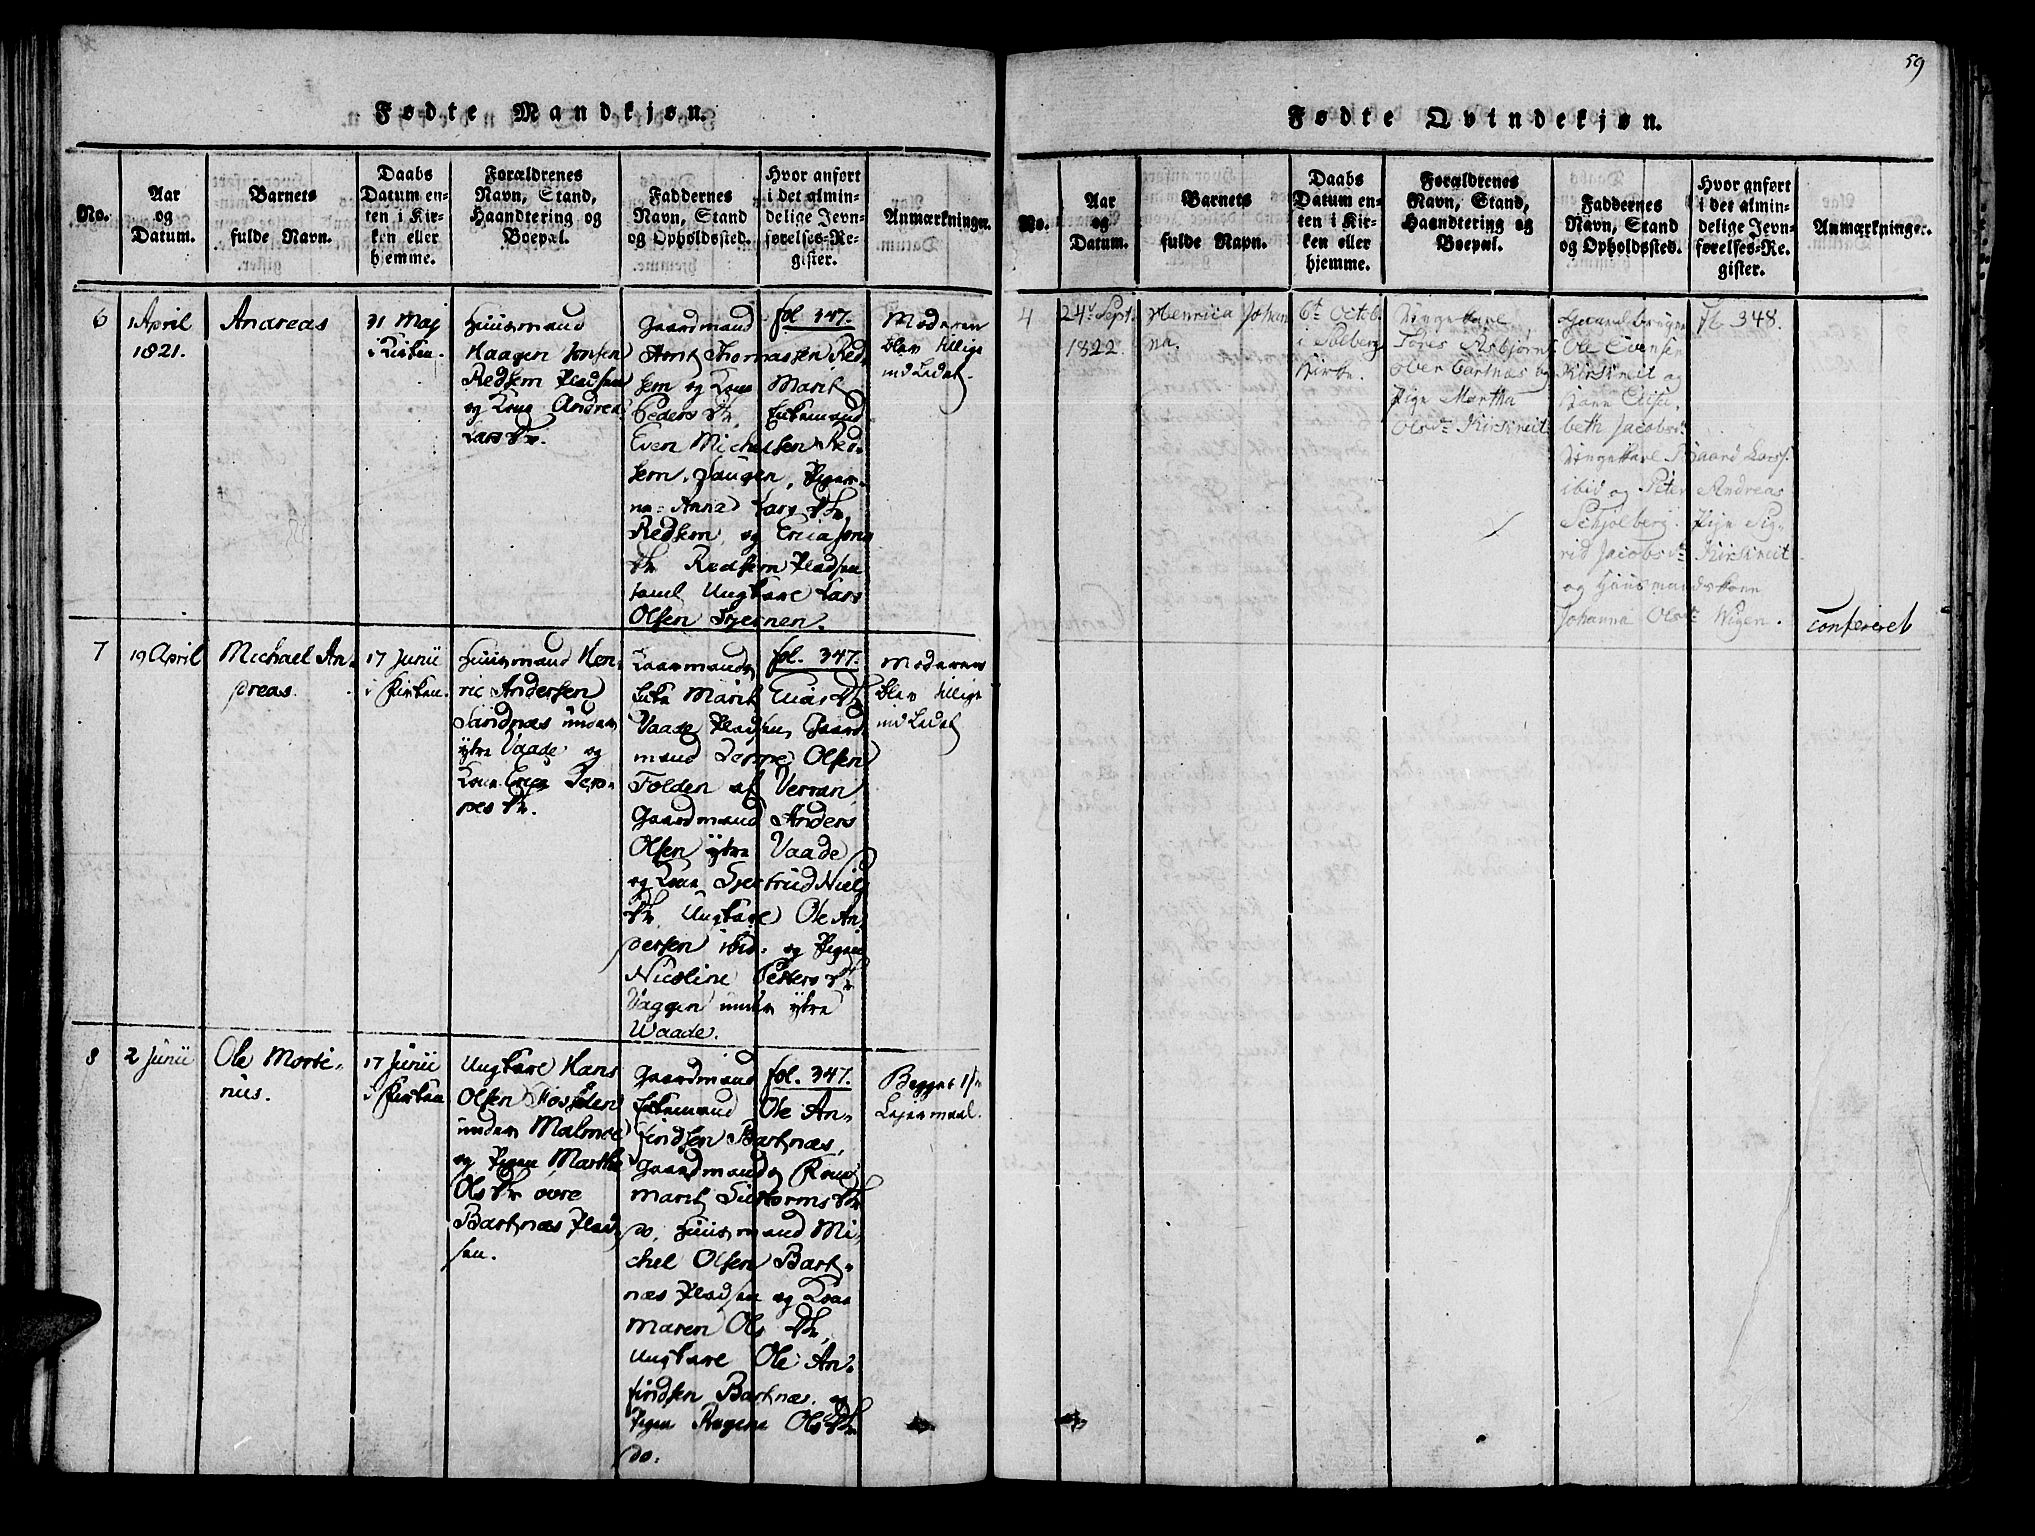 59
Fødte Mandkjøn.
No.
Aar
og
Datum.
Barnets
fulde Navn.
Daabs
Datum en-
ten i Kir-
ken eller
hjemme.
Forældrenes
Navn, Stand,
Haandtering og
Boepæl.
Faddernes
Navn, Stand
og Opholdssted.
Hvor anført
i det almin-
delige Jevn-
førelses-Re-
gister.
Anmærkninger.
6
1 April
1821.
Andreas
31 Maj
i Kirken.
Huusmand
Haagen Jonsen
Redsem Pladsen
og Kone Andrea
Lars Dtr.
Gaardmand
Arnt Thomassen Red-
sem og Kone Marit
Peders Dtr, Enkemand
Even Michelsen Red-
sem. Haugen, Piger-
ne: Anna Lars Dtr,
Redsem, og Erica Jons
Dtr Redsem Pladsen
saml Ungkarl Lars
Olsen Stjernen.
fol. 347.
Moderen
blev tillige
indledet.
7
19 April
Michael An-
dreas.
17 Junii
i Kirken.
Huusmand Hen-
ric Andersen
Sandnæs under
ytre Vaade og
Kone Erica Jep-
pes Dtr.
Gaardmands
Enke Marit Elias Dtr
Vaade Pladsen, Gaard-
mand Jeppe Olsen
Folden af Verran,
Gaardmand Anders
Olsen ytre Vaade
og Kone Gjertrud Niels
Dtr, Ungkarl Ole An-
dersen ibid: og Pigen
Nicoline Peters Dtr
Vaggen under ytre
Waade.
fol. 347.
Moderen
blev tillige
indledet
8
2 Junii
Ole Morti-
nus.
17 Junii
i Kirken
Ungkarl Hans
Olsen
under Malmoe
og Pigen Martha
Ols Dtr øvre
Bartnæs Plad-
sen.
Gaardmand
Enkemand Ole An-
findsen Bartnæs,
Gaardmands Kone
Marit Dtr
do, Huusmand Mi-
chel Olsen Bart-
næs Pladsen og Kone
Maren Ols Dtr,
Ungkarl Ole An-
findsen Bartnæs, og
Pigen Ols Dtr
do.
fol. 347.
Begges 1ste
Lejermaal.
Fødte Qvindekjøn.
No.
Aar
og
Datum.
Barnets
fulde Navn.
Daabs
Datum en-
ten i Kir-
ken eller
hjemme.
Forældrenes
Navn, Stand,
Haandtering og
Boepæl.
Faddernes
Navn, Stand
og Opholdssted.
Hvor anført
i det almin-
delige Jevn-
førelses-Re-
gister.
Anmærkninger.
4
24d Sept.
1822.
Henrica Johan-
na.
6d Octob
i Solberg
Kirke.
Ungekarl
Tores Asbjørns
over Bartnæs og
Pige Martha
Olsdr Kirkneit
Gaardbruger
Ole Evensen
Kirkneit og
Kone Elisa-
beth Jacobsd.
Ungekarl Lars
ibid og Peter Andreas
Schjølberg. Pige Sig-
rid Jacobsdr Kirkneit
og Huusmandskone
Johanna Olsdr Wigen.
fl 348.
Confereret